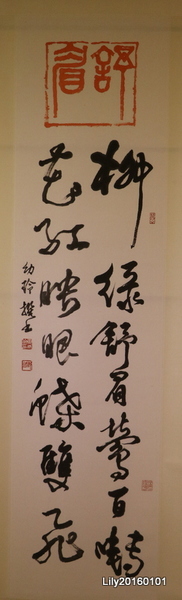 舒眉
柳綠舒眉鶯百囀
花紅映眼蝶雙飛
Lily20160101